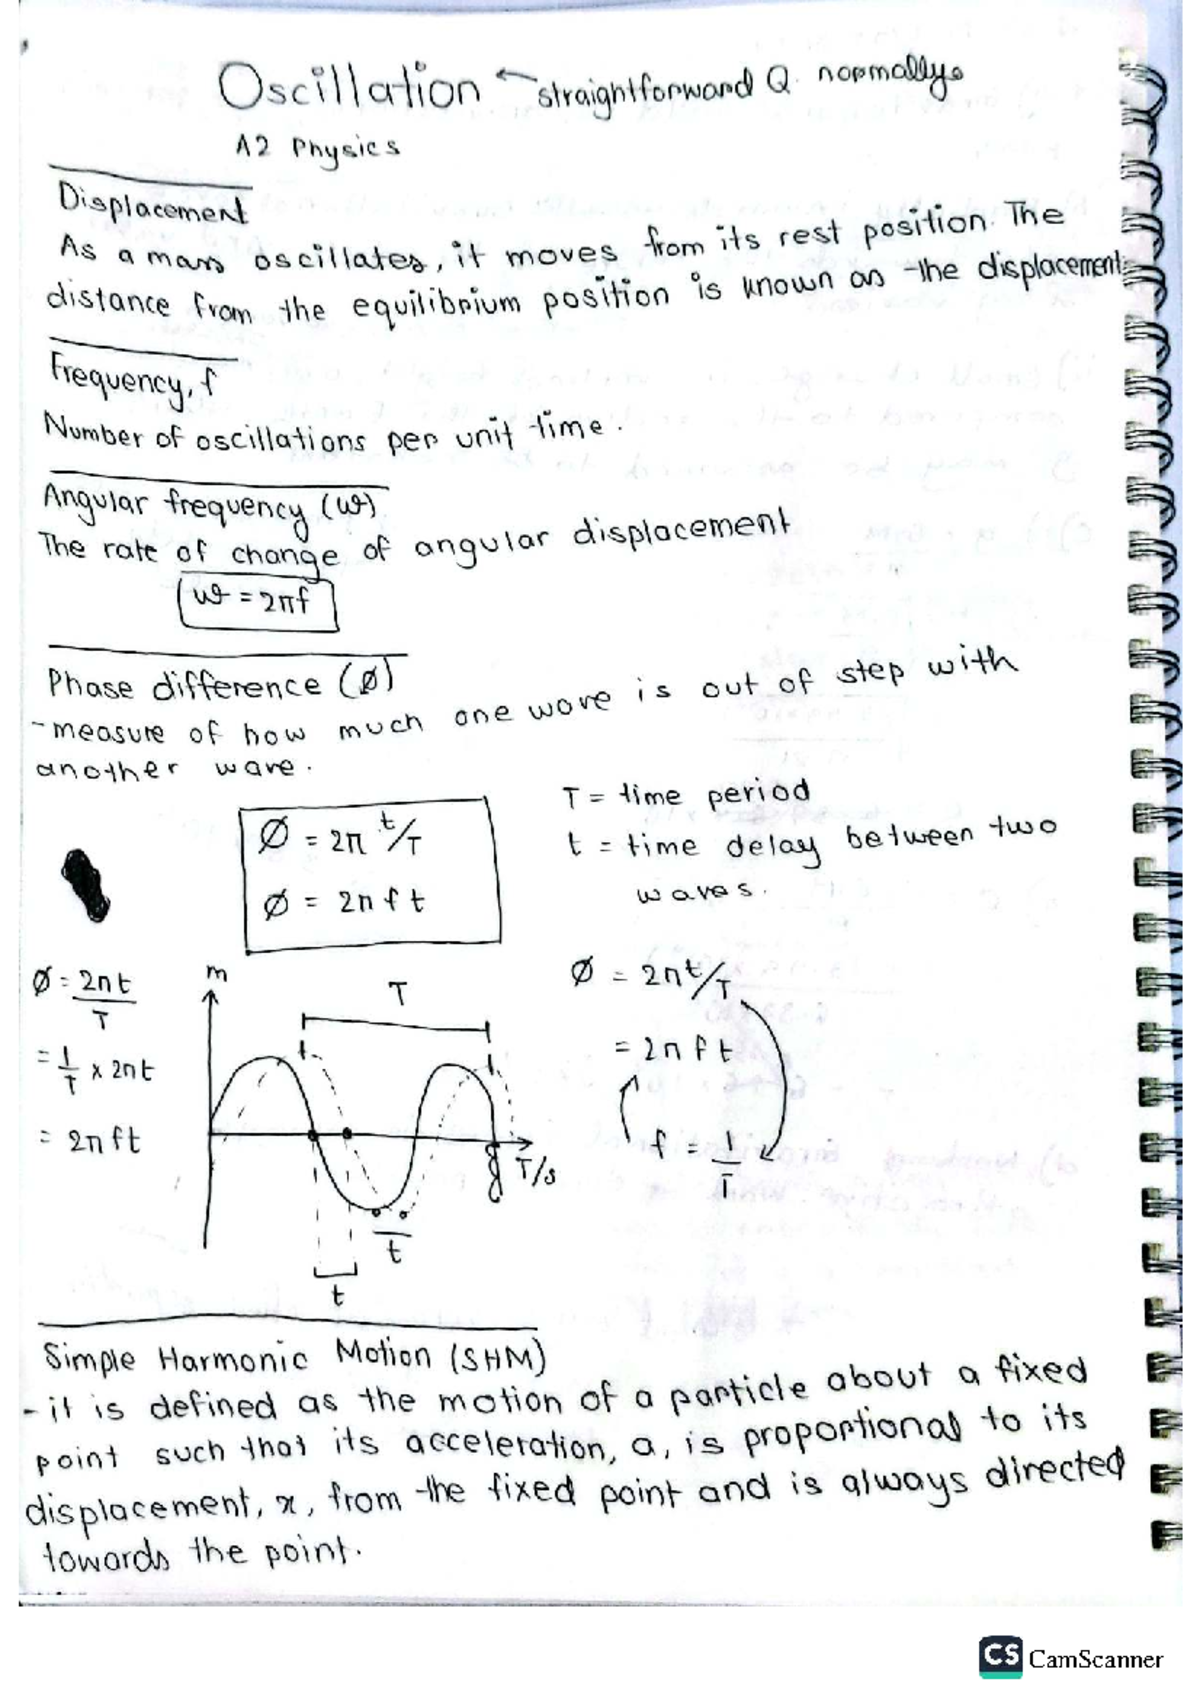 Oscillation ← straightforward Q. normally.
A2 Physics
Displacement
As a mass oscillates, it moves from its rest position. The
distance from the equilibrium position is known as the displacement
Frequency, f
Number of oscillations per unit time.
Angular frequency (ω)
The rate of change of angular displacement
ω = 2πf
Phase difference (Ø)
- measure of how much one wave is out of step with
another wave.
Ø = 2π t/T
Ø = 2π f t
T = time period
t = time delay between two
waves.
Ø = 2πt/T
= 1/T x 2πt
= 2πft
m
T
T/s
t
t
Ø = 2πt/T
= 2π f t
f = 1/T
Simple Harmonic Motion (SHM)
- it is defined as the motion of a particle about a fixed
point such that its acceleration, a, is proportional to its
displacement, x, from the fixed point and is always directed
towards the point.
CS CamScanner